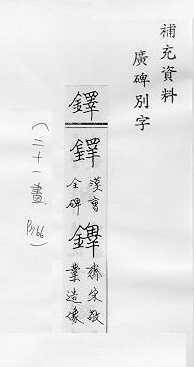 補充資料
廣碑別字
鐸
鐸
漢曹
全碑
鐸
齊宋敬
業造像
(二十一畫,
P766)